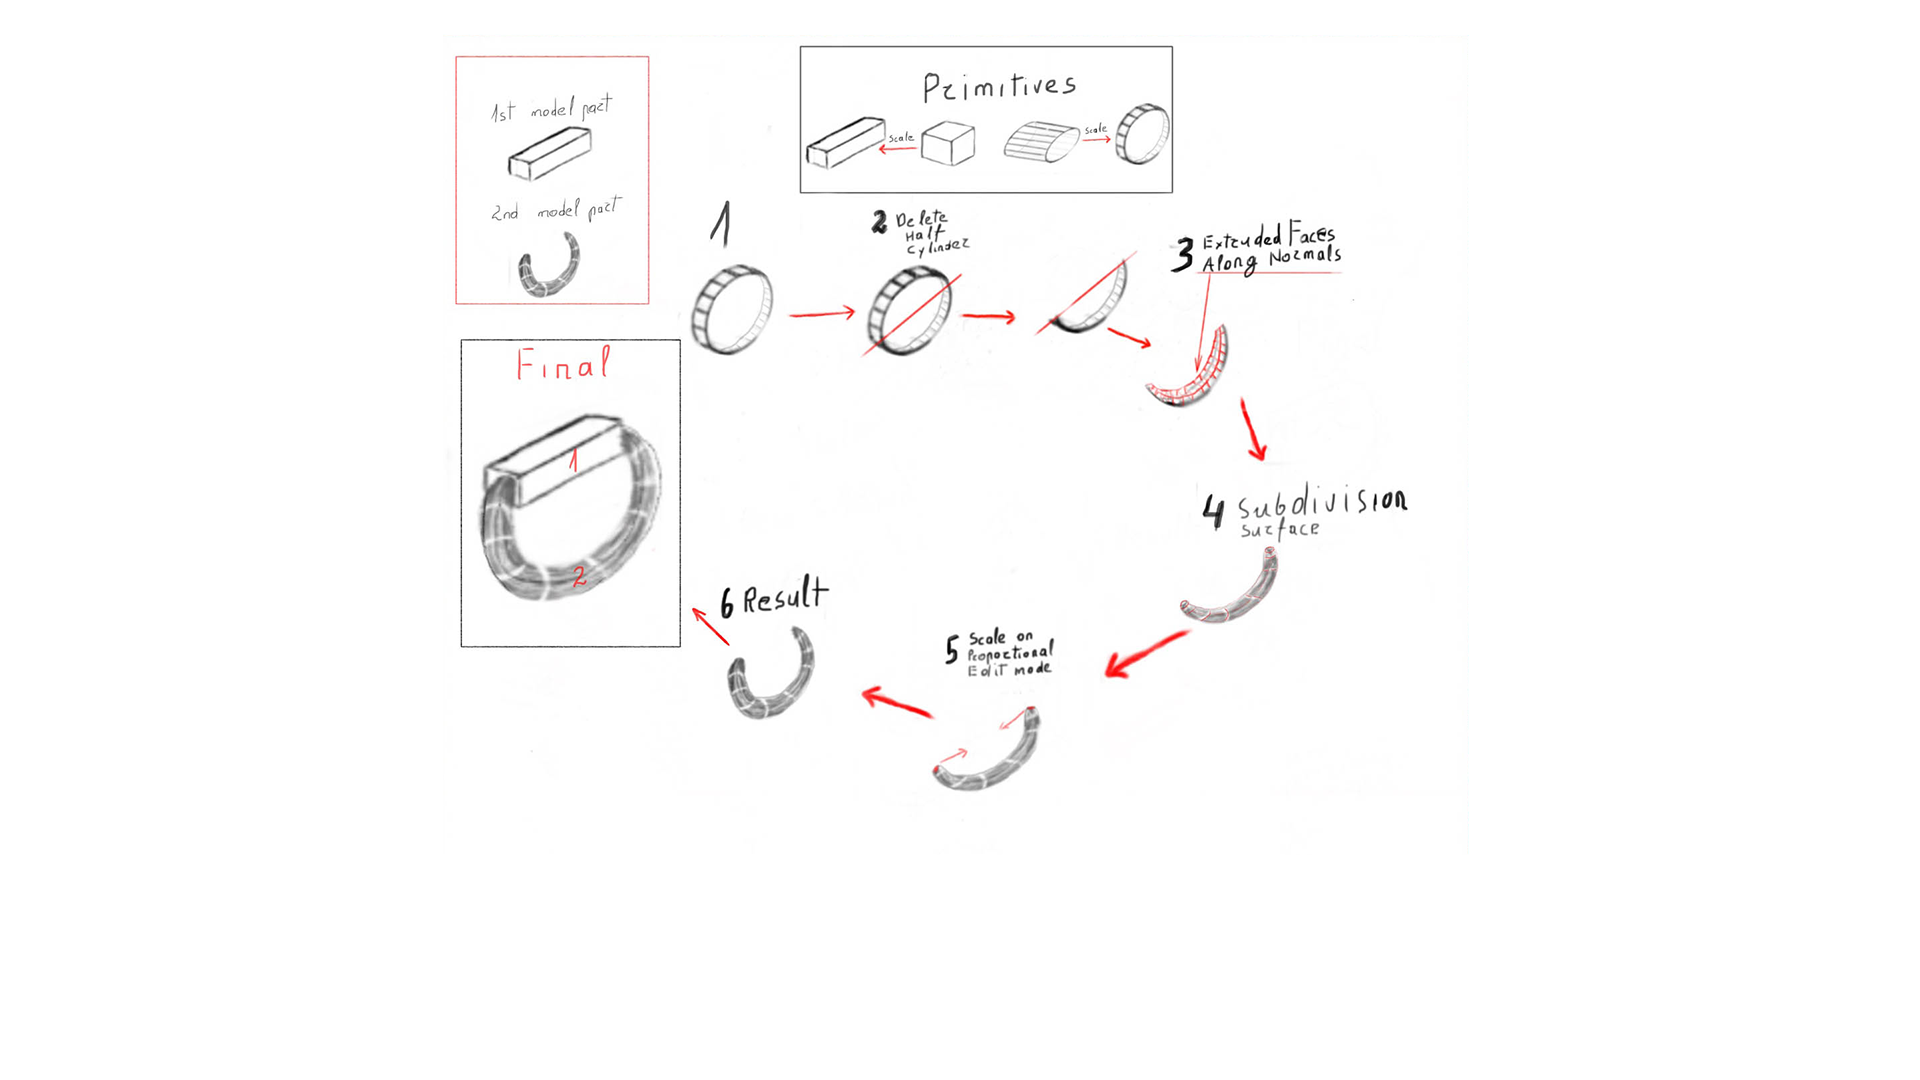 1st model part
2nd model part
Primitives
Scale
Scale
1
2 Delete
Half
Cylinder
3 Extruded Faces
Along Normals
Final
1
2
4 Subdivision
Surface
5 Scale on
Proportional
Edit mode
6 Result